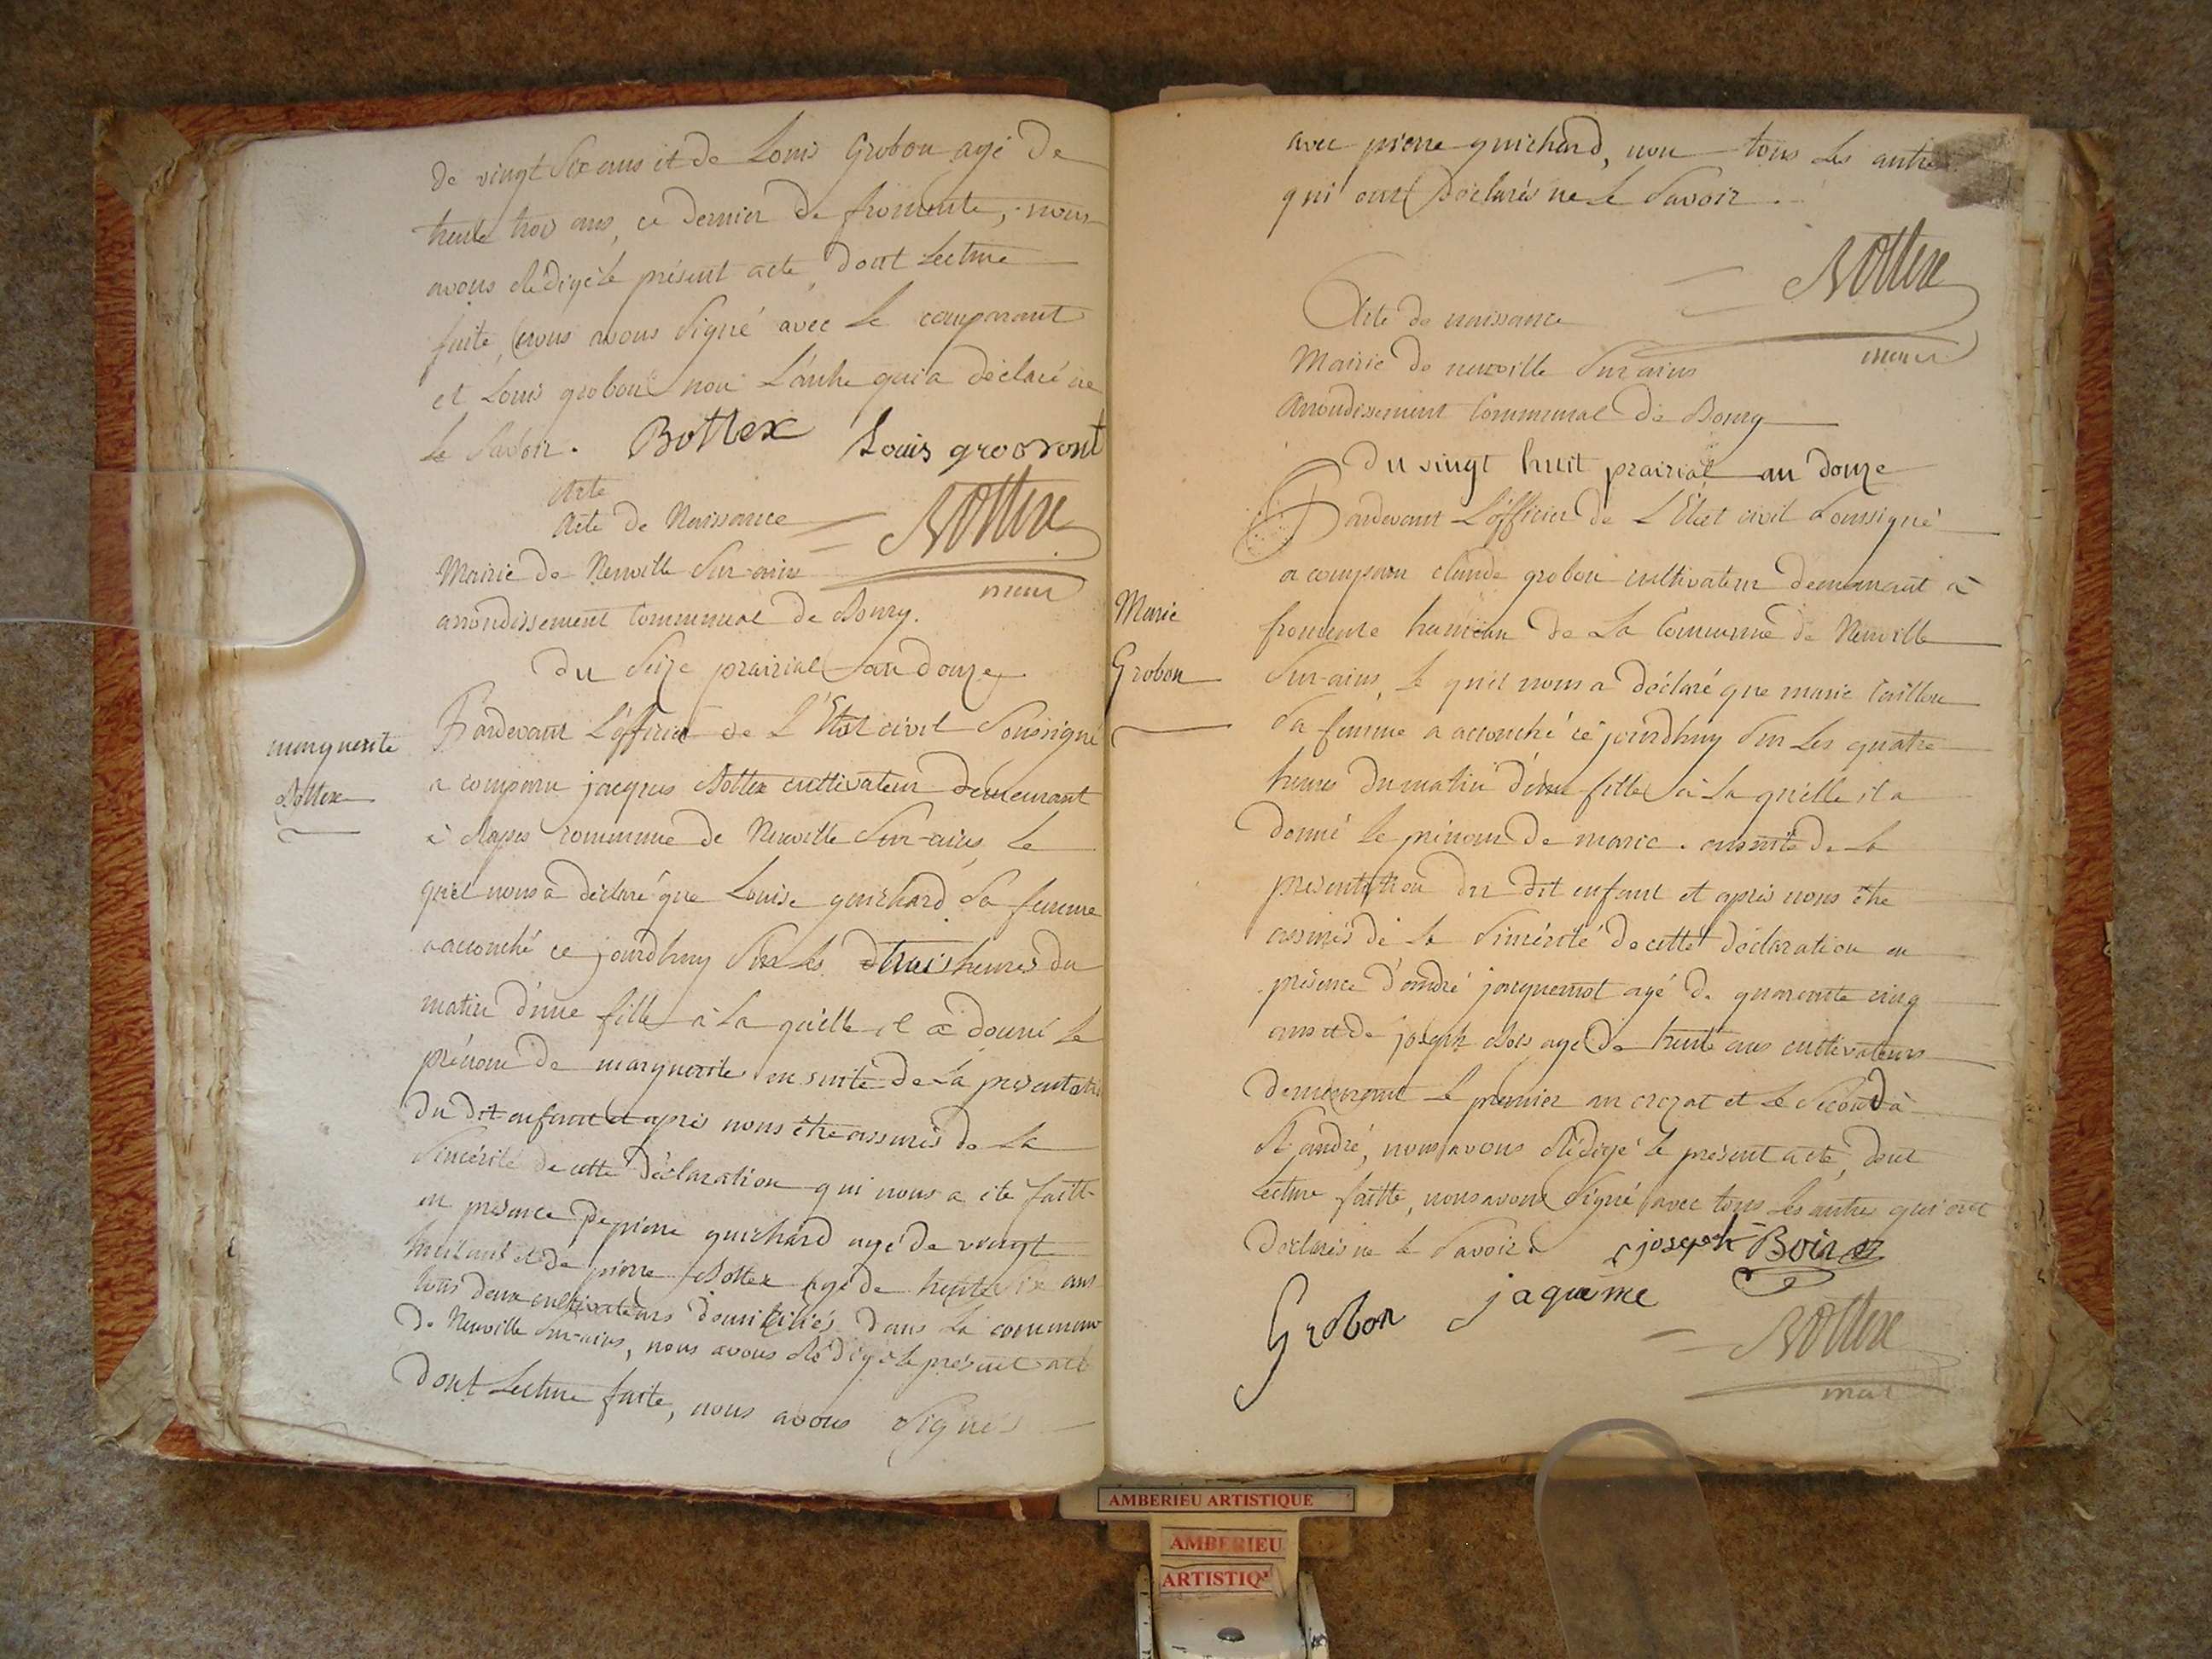 de vingt Six ans et de Louis Grobon agé de
trente trois ans, ce dernier de fromente, nous
avons Rédigé le présent acte, dont Lecture
faite, nous avons Signé avec le comparant
et Louis grobon non L'autre qui a déclaré ne
le Savoir. Bottex Louis groovont
Acte
Acte de Naissance Bottex
Mairie de Neuville Sur-ains maire
arrondissement Communal de Bourg.
Du Seize prairial an douze
marguerite
Bottex
Pardevant L'officier de L'Etat civil Soussigné
a comparu jacques Bottex cultivateur demeurant
à Rapes commune de Neuville Sur-ains, le
quel nous à déclaré que Louise guichard Sa femme
a accouché ce jourdhuy Sur les trois heures du
matin d'une fille à la quelle il a donné le
prénom de marguerite, en suite de la présentation
du dit enfant et après nous être assurés de la
Sincérité de cette déclaration qui nous a été faitte
en présence de pierre guichard agé de vingt
huit ans et de pierre Bottex agé de trente six ans
tous deux cultivateurs domiciliés dans la commune
de Neuville Sur-ains, nous avons Rédigé le présent acte
dont Lecture faite, nous avons Signés
avec pierre guichard, non tous les autres
qui ont Déclarés ne le Savoir.
Bottex
maire
Acte de naissance
Mairie de neuville Sur ains
Arrondissement Communal de Bourg
du vingt huit prairial an douze
Marie
Grobon
Pardevant L'officier de L'Etat civil Soussigné
a comparu claude grobon cultivateur demeurant à
fromente hameau de La Commune de Neuville
Sur-ains, le quel nous a déclaré que marie
Sa femme a accouché ce jourdhuy Sur les quatre
heures du matin d'une fille à la quelle il a
donné le prénom de marie. ensuite de la
présentation du dit enfant et après nous être
assurés de la Sincérité de cette déclaration en
présence d'andré jacquemot agé de quarante cinq
ans et de joseph Bois agé de trente ans cultivateurs
demeurant le premier au crozat et le Second à
St andré, nous avons Rédigé le présent acte, dont
Lecture faitte, nous avons Signé avec tous les autres qui ont
declarés ne le Savoir. joseph Boir
Grobon jaqueme
Bottex
maire
AMBERIEU ARTISTIQUE
AMBERIEU
ARTISTIQ